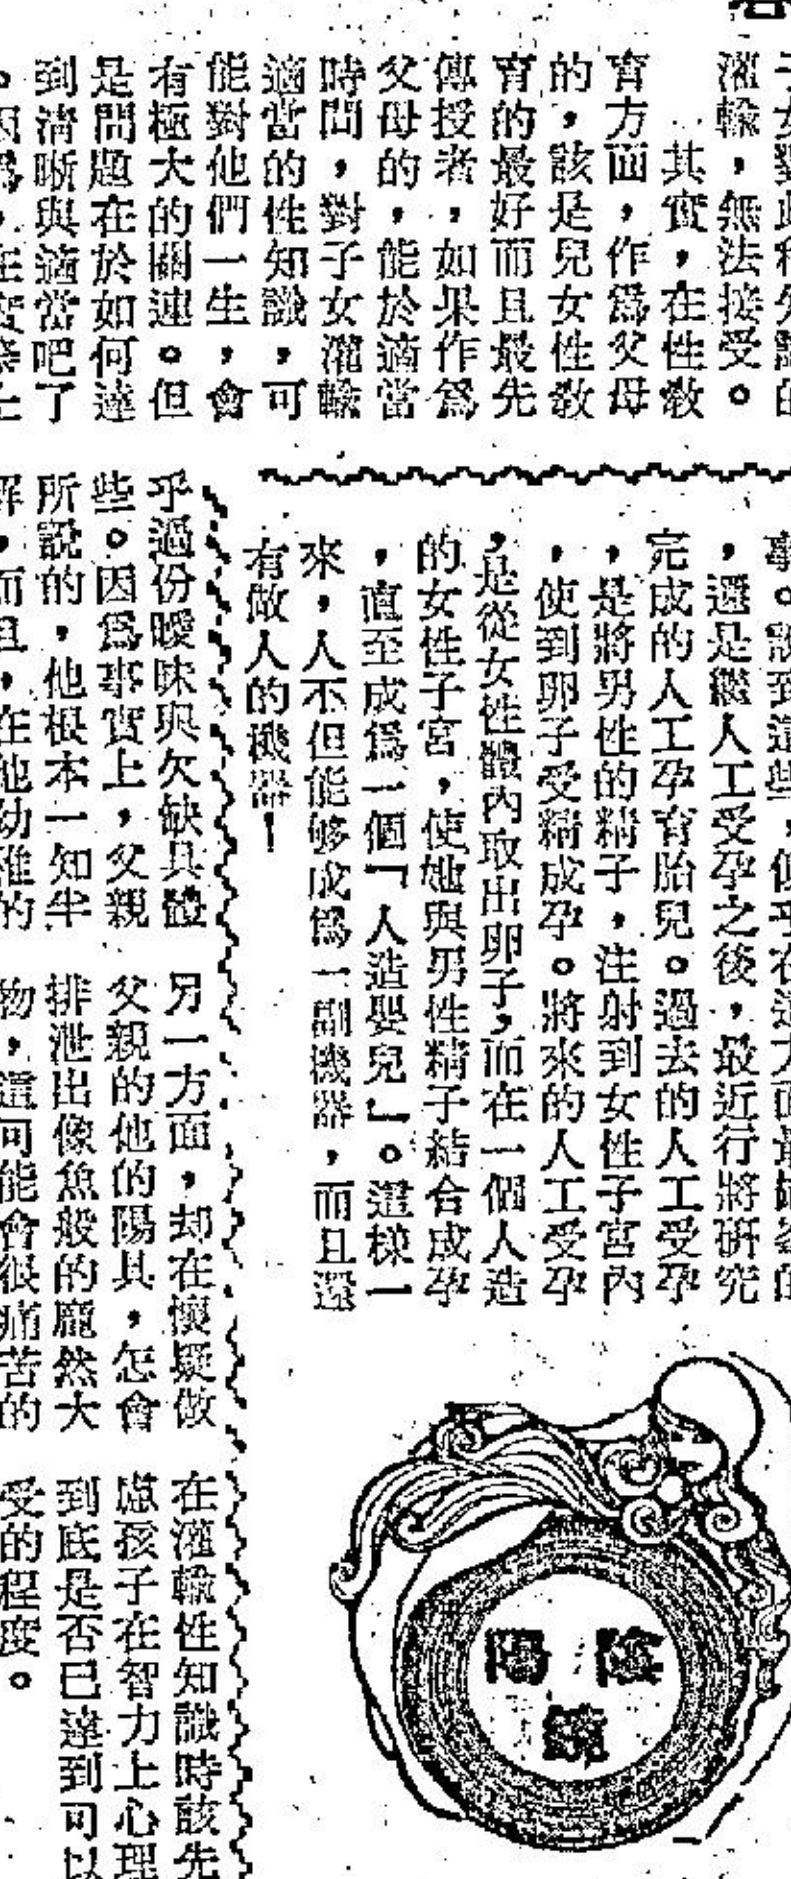 灌輸，無法接受。
其實，在性敎
育方面，作爲父母
的，該是兒女性敎
育的最好而且最先
傳授者，如果作爲
父母的，能於適當
時間，對子女灌輸
適當的性知識，可
能對他們一生，會
有極大的關連。但
是問題在於如何達
到清晰與適當吧了
，還是繼人工受孕之後，最近行將研究
完成的人工孕育胎兒。過去的人工受孕
，是將男性的精子，注射到女性子宮內
，使到卵子受精成孕。將來的人工受孕
，是從女性體內取出卵子，而在一個人造
的女性子宮，使她與男性精子結合成孕
，直至成爲一個「人造嬰兒」。這樣一
來，人不但能够成爲一副機器，而且還
有做人的機器！
陰陽
鏡
乎過份曖昧與欠缺具體
些。因爲事實上，父親
所說的，他根本一知半
另一方面，却在懷疑做
父親的他的陽具，怎會
排泄出像魚般的龐然大
物，這可能會很痛苦的
在灌輸性知識時該先
慮孩子在智力上心理
到底是否已達到可以
受的程度。